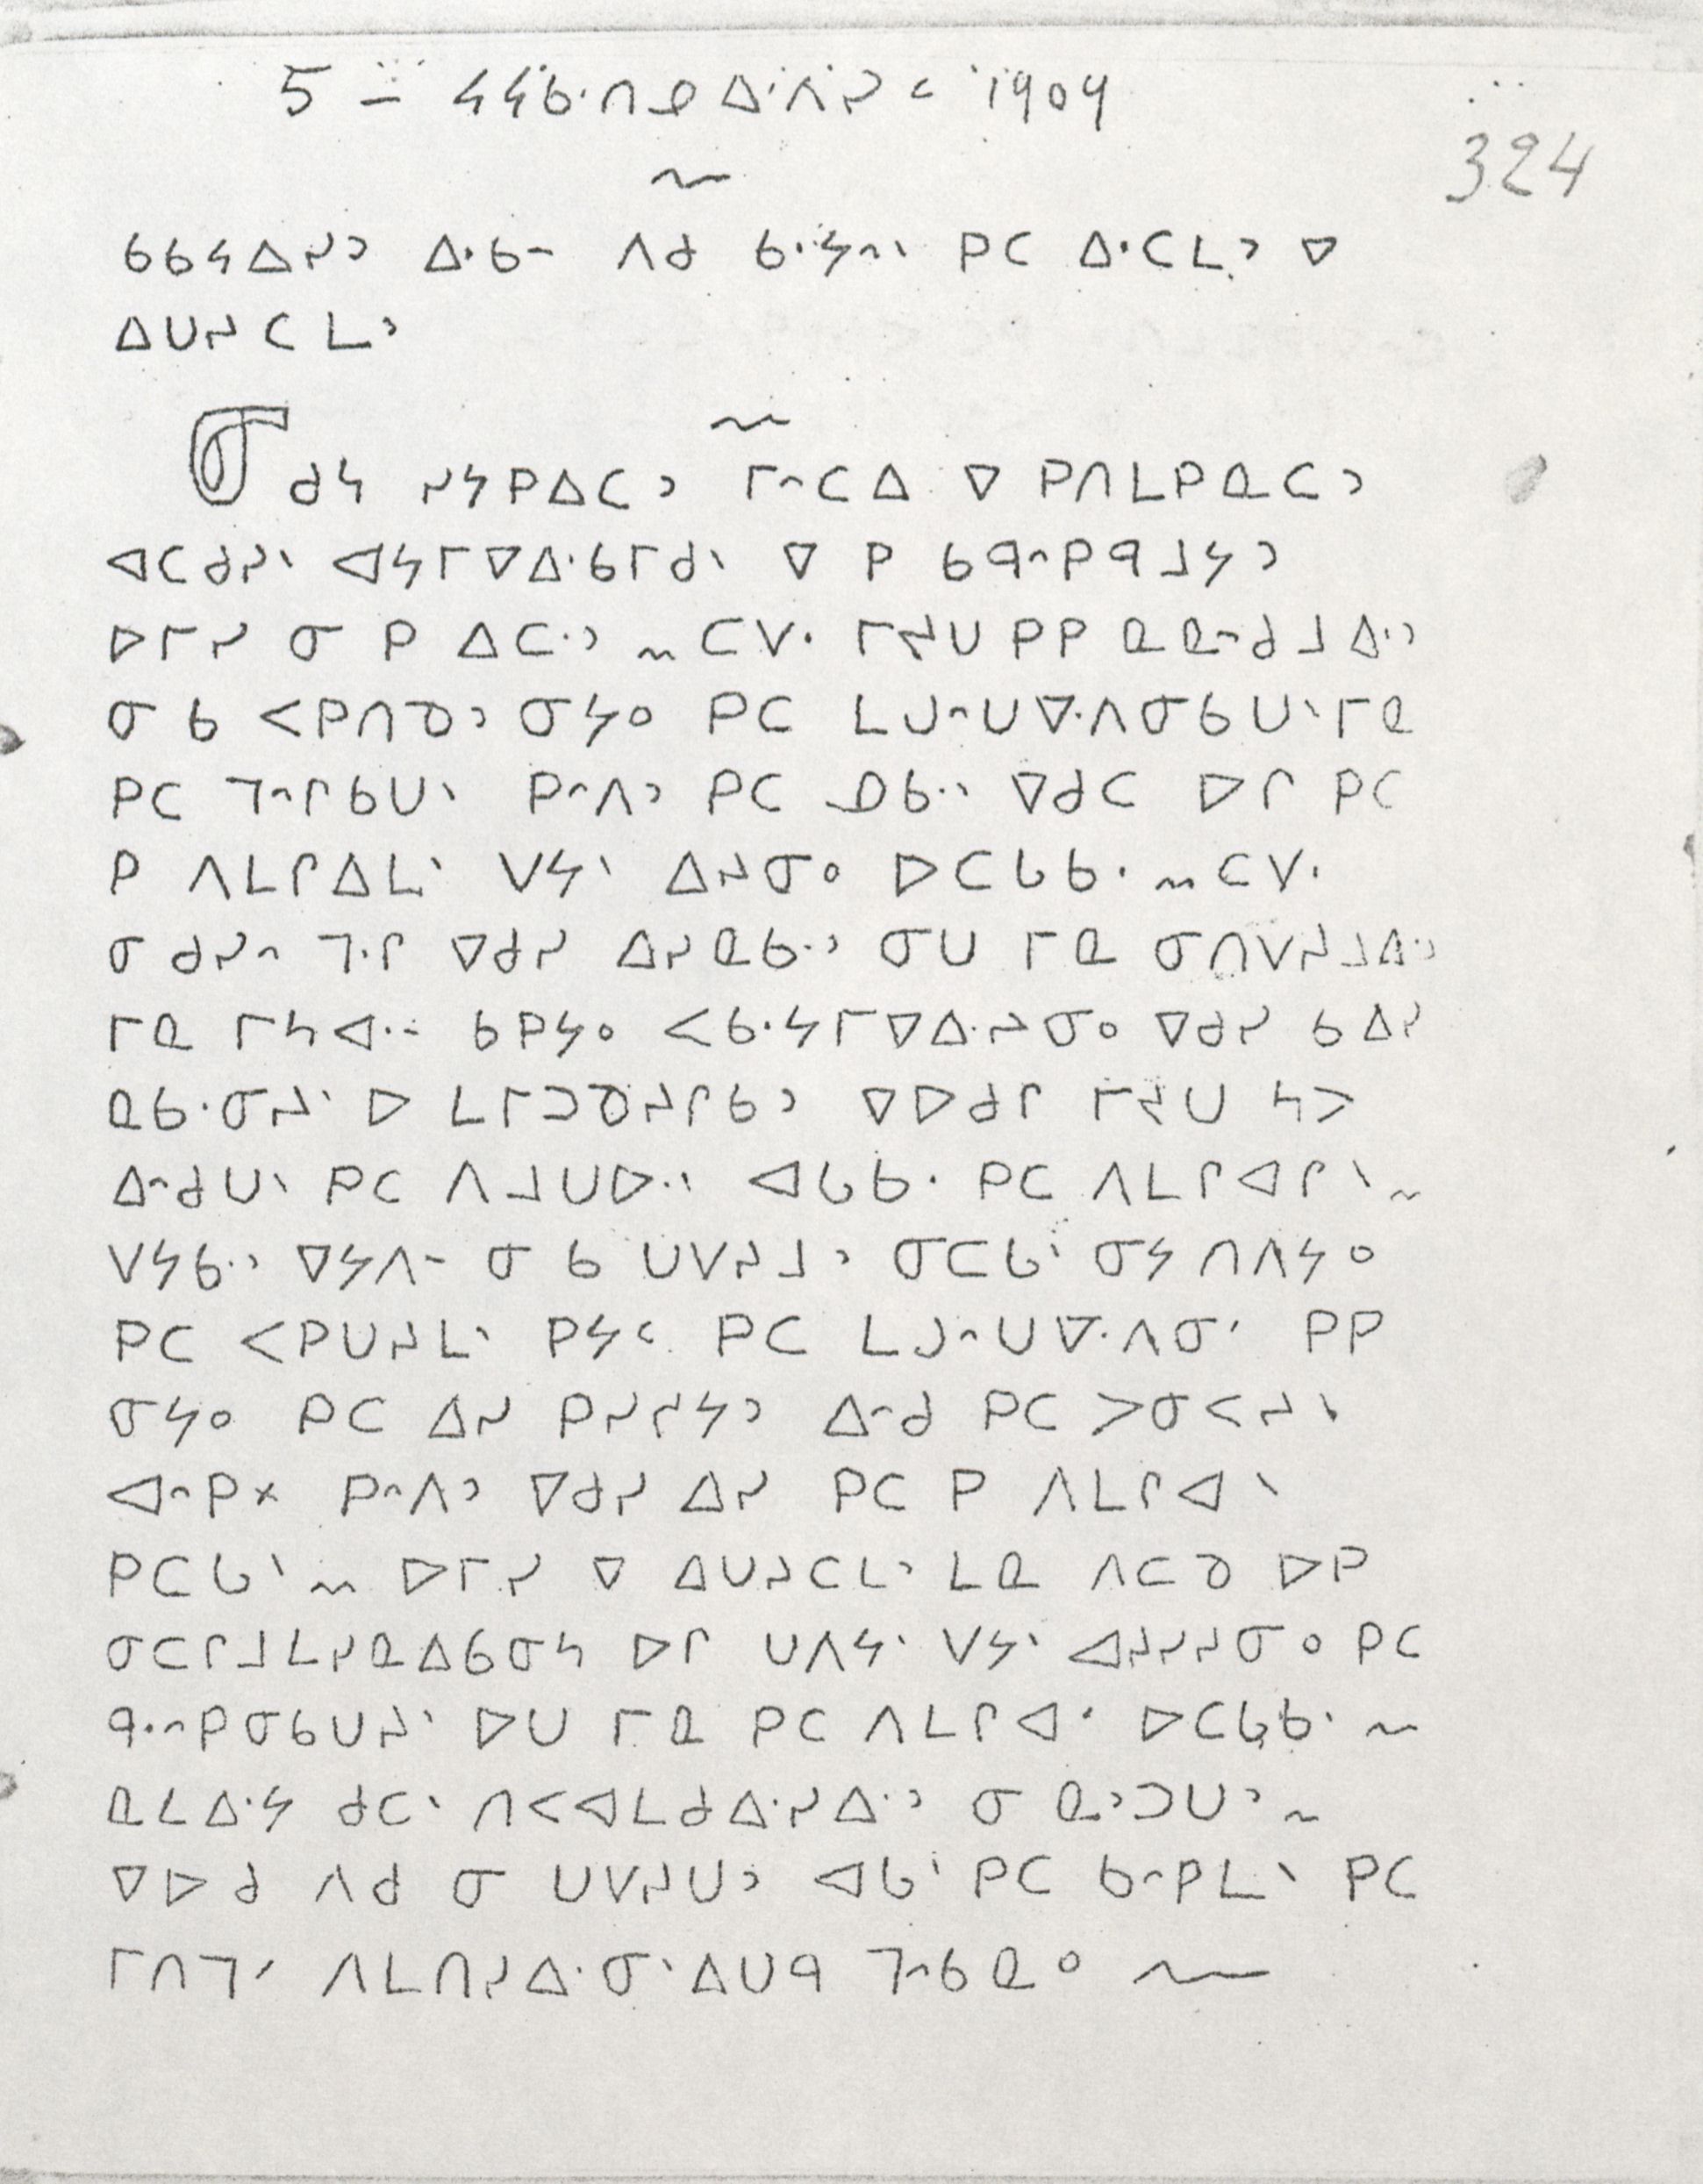 5 – ᔭᔭᑲᐧᑎᓄ ᐃᐧᐱᓯᑦ 1904
324
ᑲᑲᔭᐃᓯᐣ ᐃᐧᑲᐨ ᐱᑯ ᑲᐧᔭᐢᐠ ᑭᑕ ᐃᐧᑕᒪᐣ ᐁ
ᐃᑌᔨᑕᒪᐣ
ᓂ ᑯᔭ ᓯᔭᑭᐃᑕᐣ ᒥᐢᑕᐃ ᐁ ᑭᑎᒪᑭᓇᑕᐣ
ᐊᑕᑯᓯᐠ ᐊᔭᒥᐁᐃᐧᑲᒥᑯᐠ ᐁ ᑭ ᑲᑫᐢᑭᑫᒧᔭᐣ
ᐅᒥᓯ ᓂ ᑭ ᐃᑕᐧᐣ ~ ᑕᐯᐧ ᒥᔨᑌ ᑭᑭ ᓇᓇᐢᑯᒧᐃᐧᐣ
ᓂ ᑲ ᐸᑭᑎᓇᐣ ᓂᔭᐤ ᑭᑕ ᒪᒍᐢᑌᐁᐧᐱᓂᑲᑌᐠ ᒥᓇ
ᑭᑕ ᒣᐢᒋᑲᑌᐠ ᑭᐢᐱᐣ ᑭᑕ ᓄᑲᐧᐠ ᐁᑯᑕ ᐅᒋ ᑭᑕ
ᑭ ᐱᒪᒋᐃᒪᐠ ᐯᔭᐠ ᐃᔨᓂᐤ ᐅᑕᒐᑲᐧ ~ ᑕᐯᐧ
ᓂ ᑯᓯᐢ ᒣᐧᒋ ᐁᑯᓯ ᐃᓯᓇᑲᐧᐣ ᓂᑌ ᒥᓇ ᓂᑎᐯᔨᒧᐃᐧᐣ
ᒥᓇ ᒥᓴᐊᐧᐨ ᑲᑭᔭᐤ ᐸᑲᐧᔭᒥᐁᐃᐧᔨᓂᐤ ᐁᑯᓯ ᑲ ᐃᓯ
ᓇᑲᐧᓂᔨᐠ ᐅ ᒪᒥᑐᓀᔨᒋᑲᐣ ᐁᐅᑯᒋ ᒥᔨᑌ ᓴᐳ
ᐃᐢᑯᑌᐠ ᑭᑕ ᐱᒧᑌᐅᐧᐠ ᐊᒐᑲᐧ ᑭᑕ ᐱᒪᒋᐊᒋᐠ ~
ᐯᔭᑲᐧᐣ ᐁᔭᐱᐨ ᓂ ᑲ ᑌᐯᔨᒧᐣ ᓂᑕᒐᐠ ᓂᔭ ᑎᐱᔭᐤ
ᑭᑕ ᐸᑭᑌᔨᒪᐠ ᑭᔭᑦ ᑭᑕ ᒪᒍᐢᑌᐁᐧᐱᓂᐟ ᑭᑭ
ᓂᔭᐤ ᑭᑕ ᐃᓯ ᑭᓯᓯᔭᐣ ᐃᐢᑯ ᑭᑕ ᐳᓂᐸᔨᐠ
ᐊᐢᑭᕽ ᑭᐢᐱᐣ ᐁᑯᓯ ᐃᓯ ᑭᑕ ᑭ ᐱᒪᒋᐊᐠ
ᑭᑕᒐᐠ ~ ᐅᒥᓯ ᐁ ᐃᑌᔨᑕᒪᐣ ᒪᓇ ᐱᑕᓀ ᐅᑭ
ᓂᑕᒋᒧᒪᓯᓇᐃᑲᓂᓴ ᐅᒋ ᑌᐱᔭᐠ ᐯᔭᐠ ᐊᔨᓯᔨᓂᐤ ᑭᑕ
ᑫᐧᐢᑭᓂᑲᑌᔨᐠ ᐅᑌ ᒥᓇ ᑭᑕ ᐱᒪᒋᐊᐠ ᐅᑕᒐᑲᐧ ~
ᓇᒪᐃᐧᔭ ᑯᑕᐠ ᑎᐸᐊᒪᑯᐃᐧᓯᐃᐧᐣ ᓂ ᓇᐣᑐᑌᐣ ~
ᐁᐅᑯ ᐱᑯ ᓂ ᑌᐯᔨᑌᐣ ᐊᒐᐠ ᑭᑕ ᑲᐢᑭᒪᐠ ᑭᑕ
ᒥᑎᒣᐟ ᐱᒪᑎᓯᐃᐧᓂᐠ ᐃᑌᑫ ᒣᐢᑲᓇᐤ ~